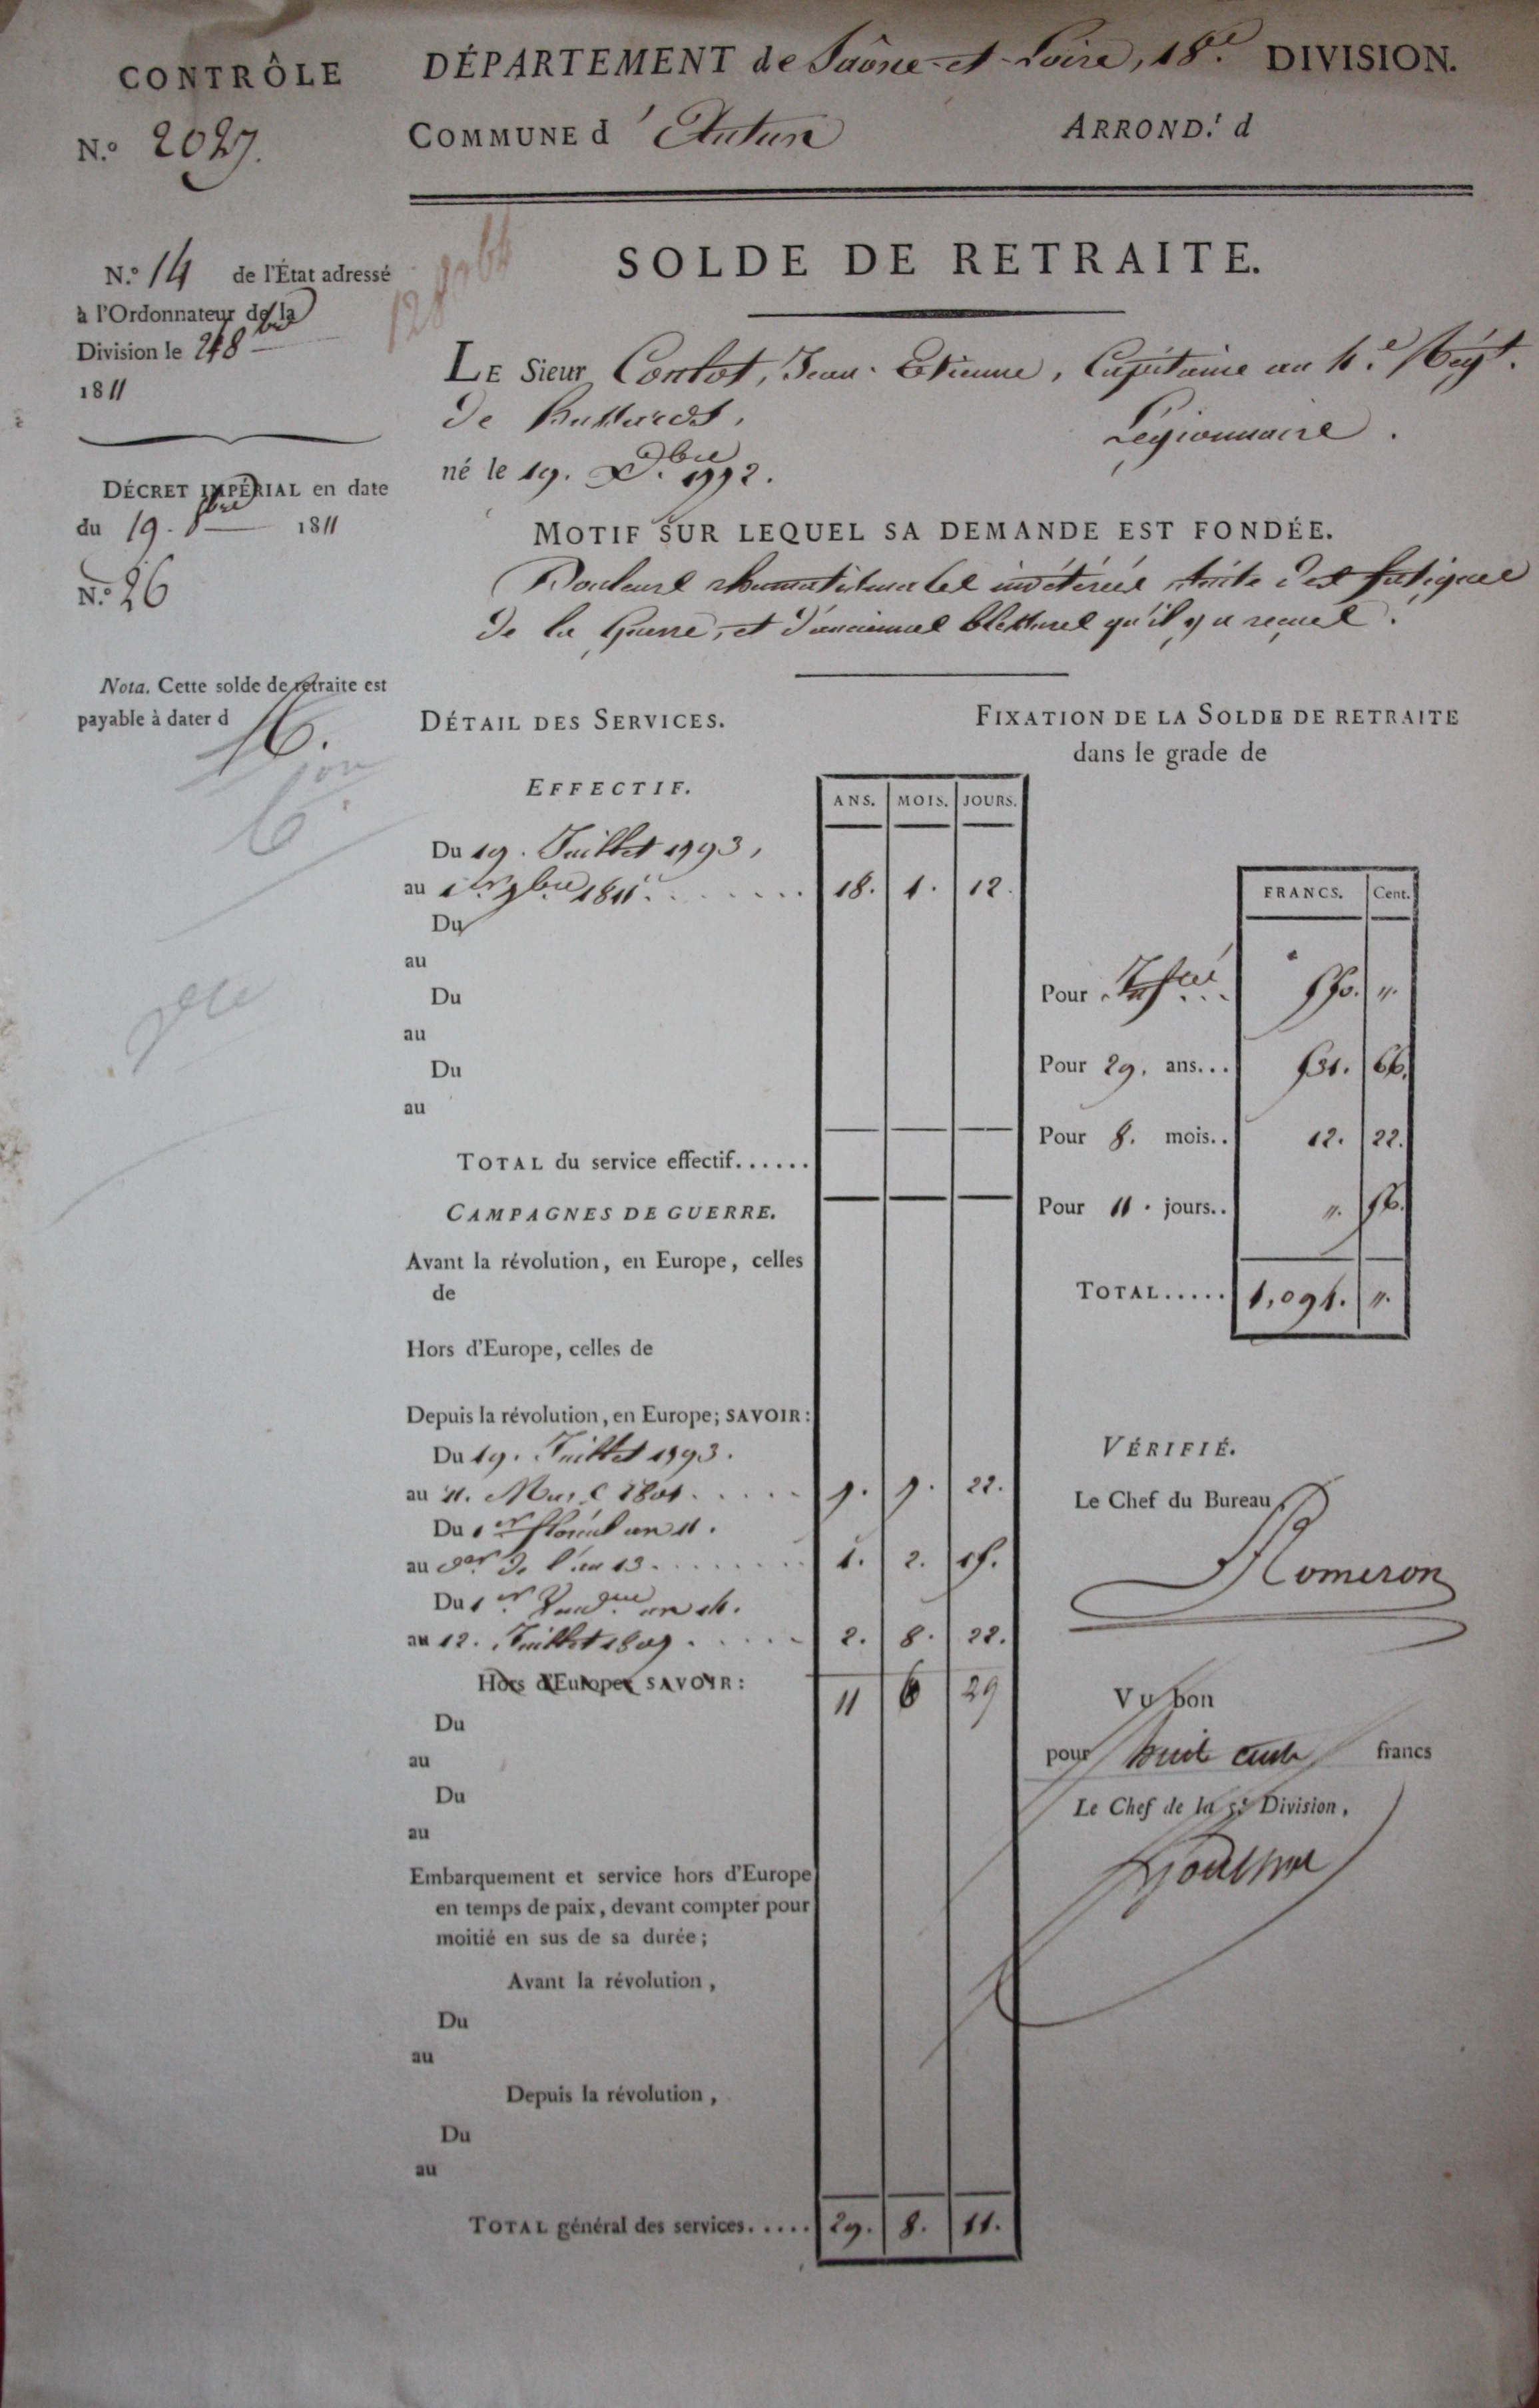 CONTRÔLE
N.º 2027.
DÉPARTEMENT de Saône-et-Loire, 18.e DIVISION.
COMMUNE d'Autun ARROND.t d
N.º 14 de l'État adressé
à l'Ordonnateur de la
Division le 8bre
1811
DÉCRET IMPÉRIAL en date
du 19. 8bre 1811
N.º 26
Nota. Cette solde de retraite est
payable à dater d
SOLDE DE RETRAITE.
LE Sieur Contot, Jean-Etienne, Capitaine au 4.e Régt.
de hussards, Légionnaire.
né le 19. X.bre 1772.
MOTIF SUR LEQUEL SA DEMANDE EST FONDÉE.
Douleurs rhumatismales invétérées suite des fatigues
de la guerre, et d'anciennes blessures qu'il y a reçues.
DÉTAIL DES SERVICES.
EFFECTIF.
ANS. MOIS. JOURS.
Du 19. Juillet 1793,
au 1er 7bre 1811. 18. 1. 12.
Du
au
Du
au
Du
au
TOTAL du service effectif......
CAMPAGNES DE GUERRE.
Avant la révolution, en Europe, celles
de
Hors d'Europe, celles de
Depuis la révolution, en Europe; SAVOIR:
Du 19. Juillet 1793.
au 11. Mars 1801. 7. 7. 22.
Du 1er floréal an 11.
au der de l'an 13. 1. 2. 15.
Du 1er Vendre an 14.
au 12. Juillet 1807. 2. 8. 22.
Hors d'Europe; SAVOIR: 11 6 29
Du
au
Du
au
Embarquement et service hors d'Europe
en temps de paix, devant compter pour
moitié en sus de sa durée;
Avant la révolution,
Du
au
Depuis la révolution,
Du
au
TOTAL général des services..... 29. 8. 11.
FIXATION DE LA SOLDE DE RETRAITE
dans le grade de
FRANCS. Cent.
Pour 550. ".
Pour 29. ans... 531. 66.
Pour 8. mois.. 12. 22.
Pour 11. jours.. ". 56.
TOTAL..... 1,094. ".
VÉRIFIÉ.
Le Chef du Bureau,
Romeron
VU bon
pour huit cents francs
Le Chef de la 5.e Division,